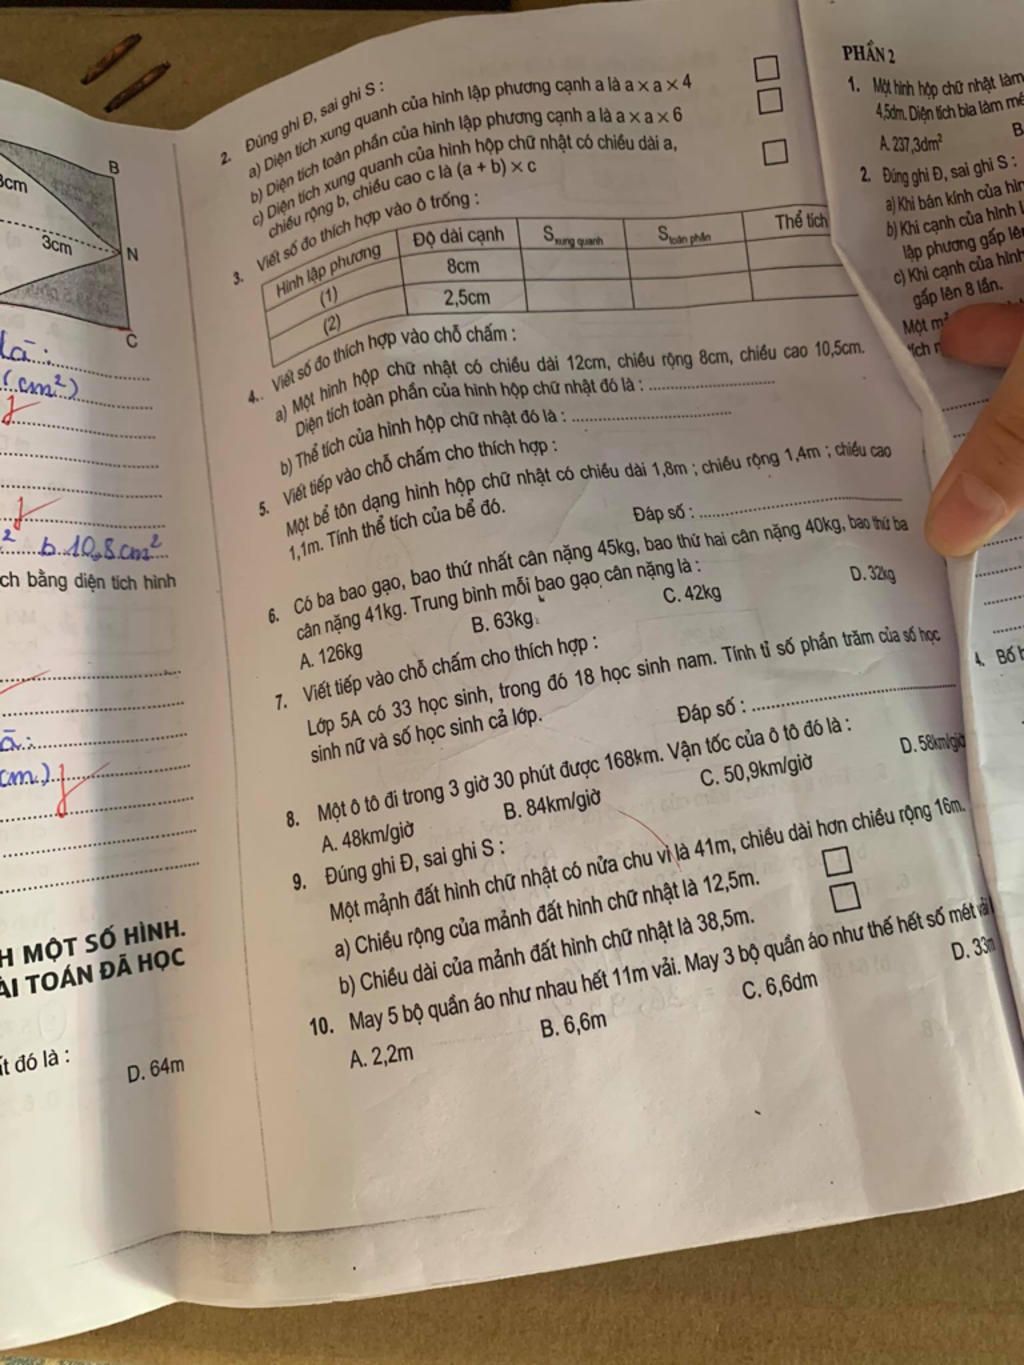 B
3cm
3cm
N
C
là :
(cm²)
b. 10,8 cm²
ch bằng diện tích hình
H MỘT SỐ HÌNH.
ÀI TOÁN ĐÃ HỌC
ít đó là :
D. 64m
2. Đúng ghi Đ, sai ghi S :
a) Diện tích xung quanh của hình lập phương cạnh a là a × a × 4
b) Diện tích toàn phần của hình lập phương cạnh a là a × a × 6
c) Diện tích xung quanh của hình hộp chữ nhật có chiều dài a,
chiều rộng b, chiều cao c là (a + b) × c
3. Viết số đo thích hợp vào ô trống :
Hình lập phương Độ dài cạnh Sxung quanh Stoàn phần Thể tích
(1) 8cm
(2) 2,5cm
4. Viết số đo thích hợp vào chỗ chấm :
a) Một hình hộp chữ nhật có chiều dài 12cm, chiều rộng 8cm, chiều cao 10,5cm.
Diện tích toàn phần của hình hộp chữ nhật đó là : ....................
b) Thể tích của hình hộp chữ nhật đó là : ....................
5. Viết tiếp vào chỗ chấm cho thích hợp :
Một bể tôn dạng hình hộp chữ nhật có chiều dài 1,8m ; chiều rộng 1,4m ; chiều cao
1,1m. Tính thể tích của bể đó.
Đáp số : ....................
6. Có ba bao gạo, bao thứ nhất cân nặng 45kg, bao thứ hai cân nặng 40kg, bao thứ ba
cân nặng 41kg. Trung bình mỗi bao gạo cân nặng là :
A. 126kg B. 63kg C. 42kg D. 32kg
7. Viết tiếp vào chỗ chấm cho thích hợp :
Lớp 5A có 33 học sinh, trong đó 18 học sinh nam. Tính tỉ số phần trăm của số học
sinh nữ và số học sinh cả lớp.
Đáp số : ....................
8. Một ô tô đi trong 3 giờ 30 phút được 168km. Vận tốc của ô tô đó là :
A. 48km/giờ B. 84km/giờ C. 50,9km/giờ D. 58km/giờ
9. Đúng ghi Đ, sai ghi S :
Một mảnh đất hình chữ nhật có nửa chu vi là 41m, chiều dài hơn chiều rộng 16m.
a) Chiều rộng của mảnh đất hình chữ nhật là 12,5m.
b) Chiều dài của mảnh đất hình chữ nhật là 38,5m.
10. May 5 bộ quần áo như nhau hết 11m vải. May 3 bộ quần áo như thế hết số mét vải
A. 2,2m B. 6,6m C. 6,6dm D. 33m
PHẦN 2
1. Một hình hộp chữ nhật làm
4,5dm. Diện tích bìa làm
A. 237,3dm² B
2. Đúng ghi Đ, sai ghi S :
a) Khi bán kính của
b) Khi cạnh của hình
lập phương gấp
c) Khi cạnh của hình
gấp lên 8 lần.
Một
tích
4. Bố